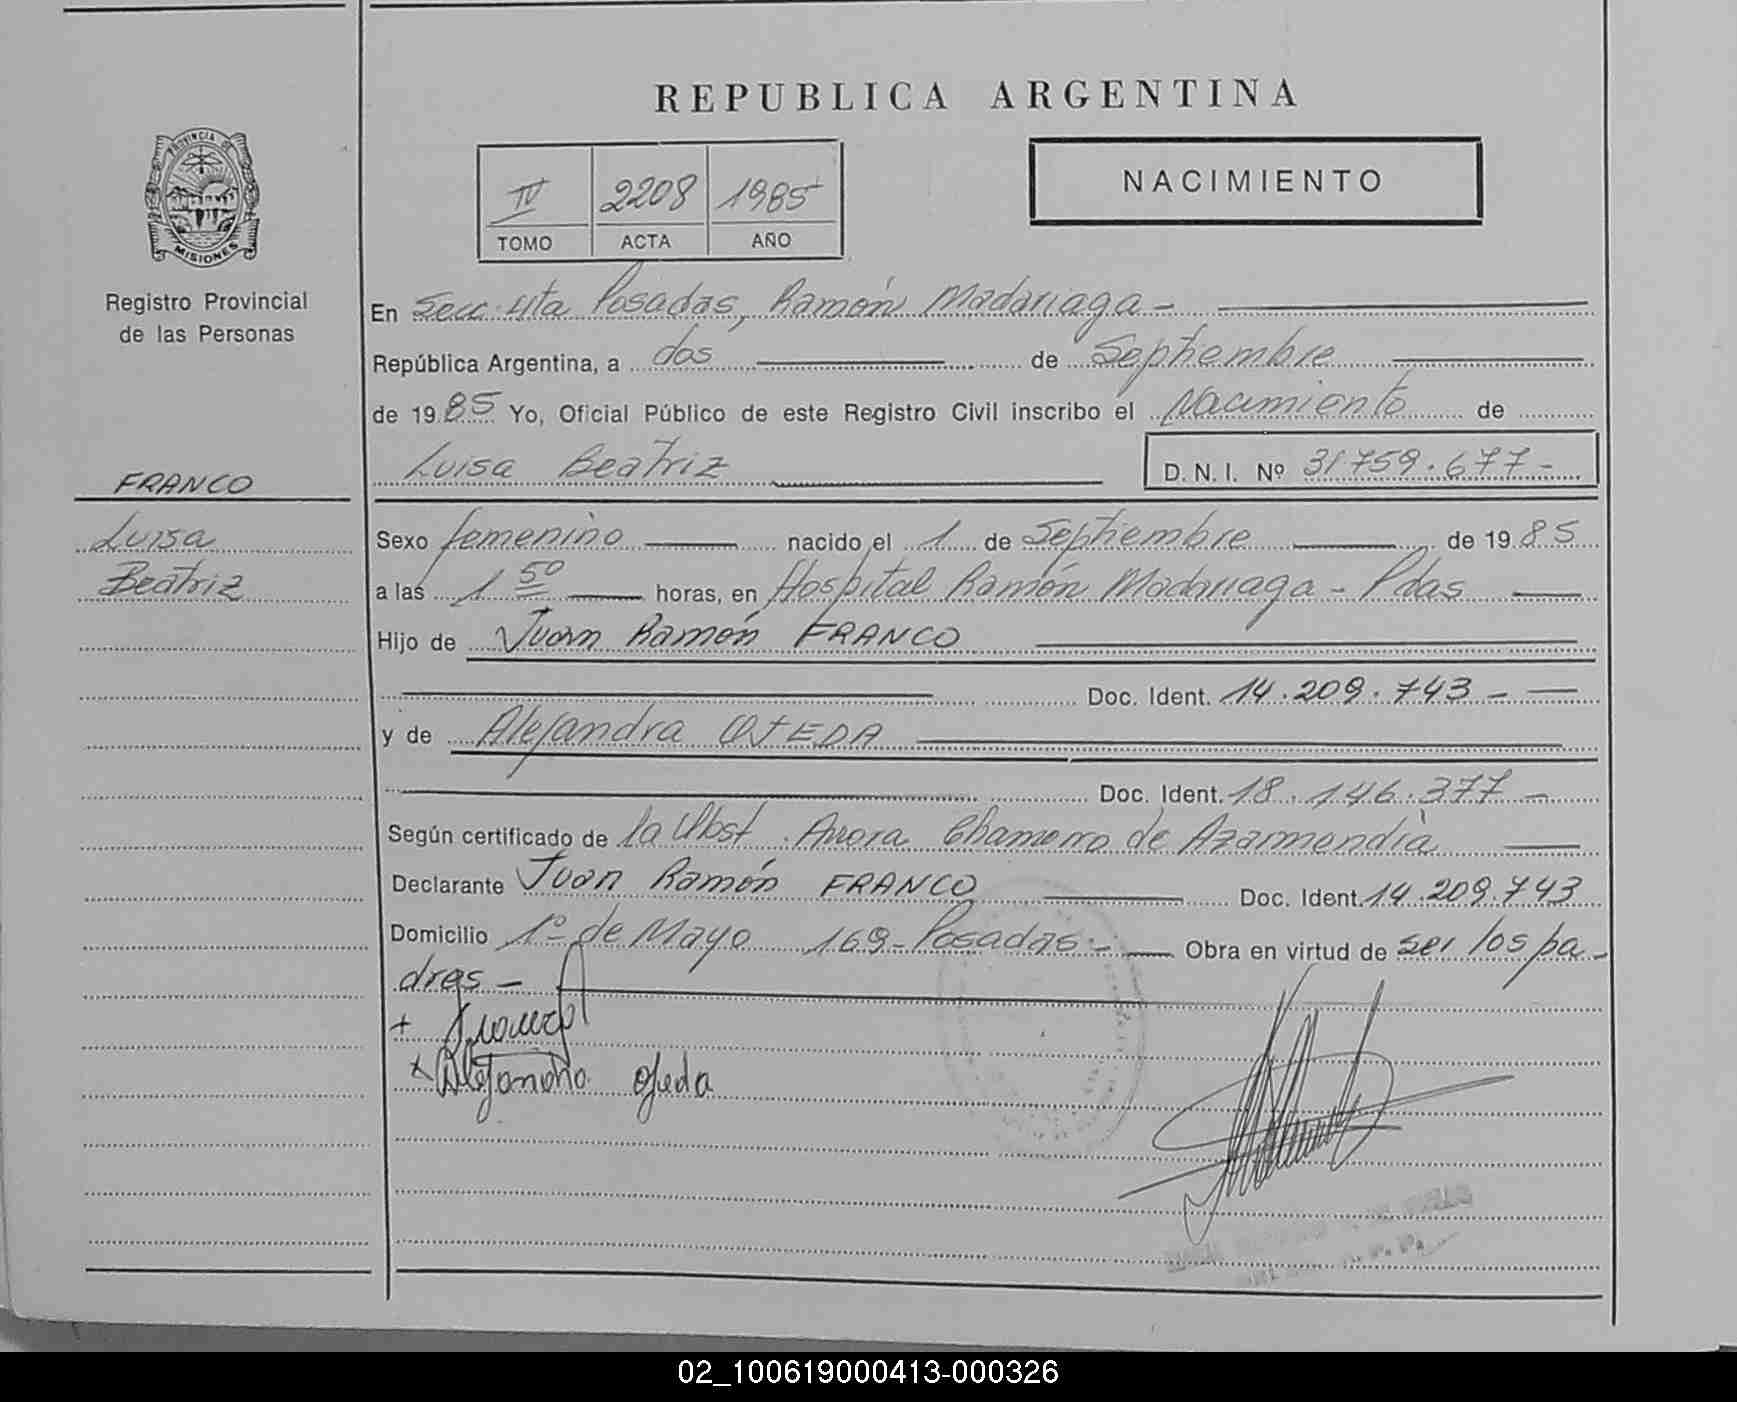 REPUBLICA ARGENTINA
PROVINCIA DE
MISIONES
Registro Provincial
de las Personas
IV 2208 1985
TOMO ACTA AÑO
NACIMIENTO
En Secc. 4ta Posadas, Ramón Madariaga -
República Argentina, a dos de Septiembre
de 1985 Yo, Oficial Público de este Registro Civil inscribo el Nacimiento de
Luisa Beatriz D. N. I. Nº 31759.677-
FRANCO
Luisa
Beatriz
Sexo femenino nacido el 1 de Septiembre de 1985
a las 1 50 horas, en Hospital Ramón Madariaga - Pdas
Hijo de Juan Ramón FRANCO
Doc. Ident. 14.209.743 -
y de Alejandra OJEDA
Doc. Ident. 18.146.377 -
Según certificado de la Obst. Aurora Chamorro de Azarmendia
Declarante Juan Ramón FRANCO Doc. Ident. 14.209.743
Domicilio 1º de Mayo 169 - Posadas - Obra en virtud de ser los pa-
dres -
+
x Alejandra Ojeda
02_100619000413-000326